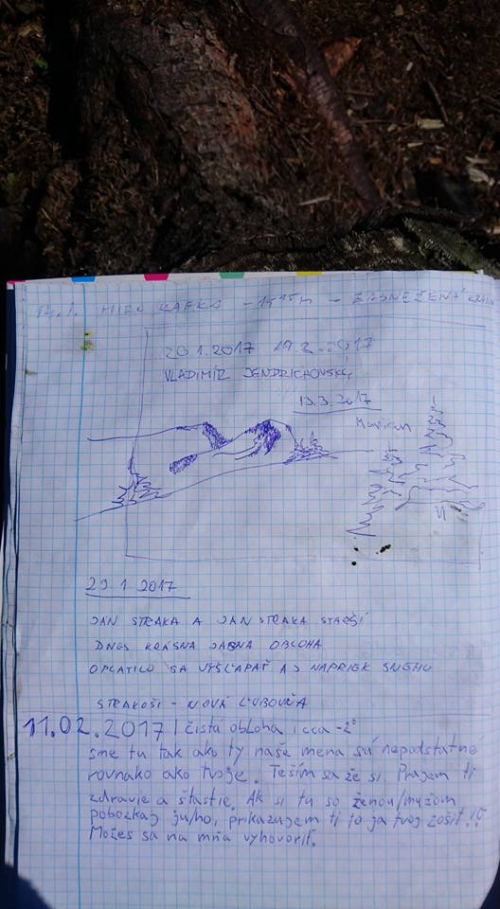 20.1.2017 19.2.2017
VLADIMÍR JENDRICHOVSKÝ
13.3.2017
29.1.2017
JAN STRAKA A JAN STRAKA STARŠÍ
DNES KRÁSNA JASNÁ OBLOHA
OPLATILO SA VYŠĽAPAŤ AJ NAPRIEK SNEHU
STRAKOŠI - NOVÁ ĽUBOVŇA
11.02.2017 | čistá obloha | cca -2°
sme tu tak ako ty naše mena sú nepodstatné
rovnako ako tvoje. Teším sa že si. Prajem ti
zdravie a štastie. Ak si tu so ženou/mužom
pobozkaj ju/ho, prikazujem ti to ja tvoj zošit!
Možes sa na mňa vyhovoriť.